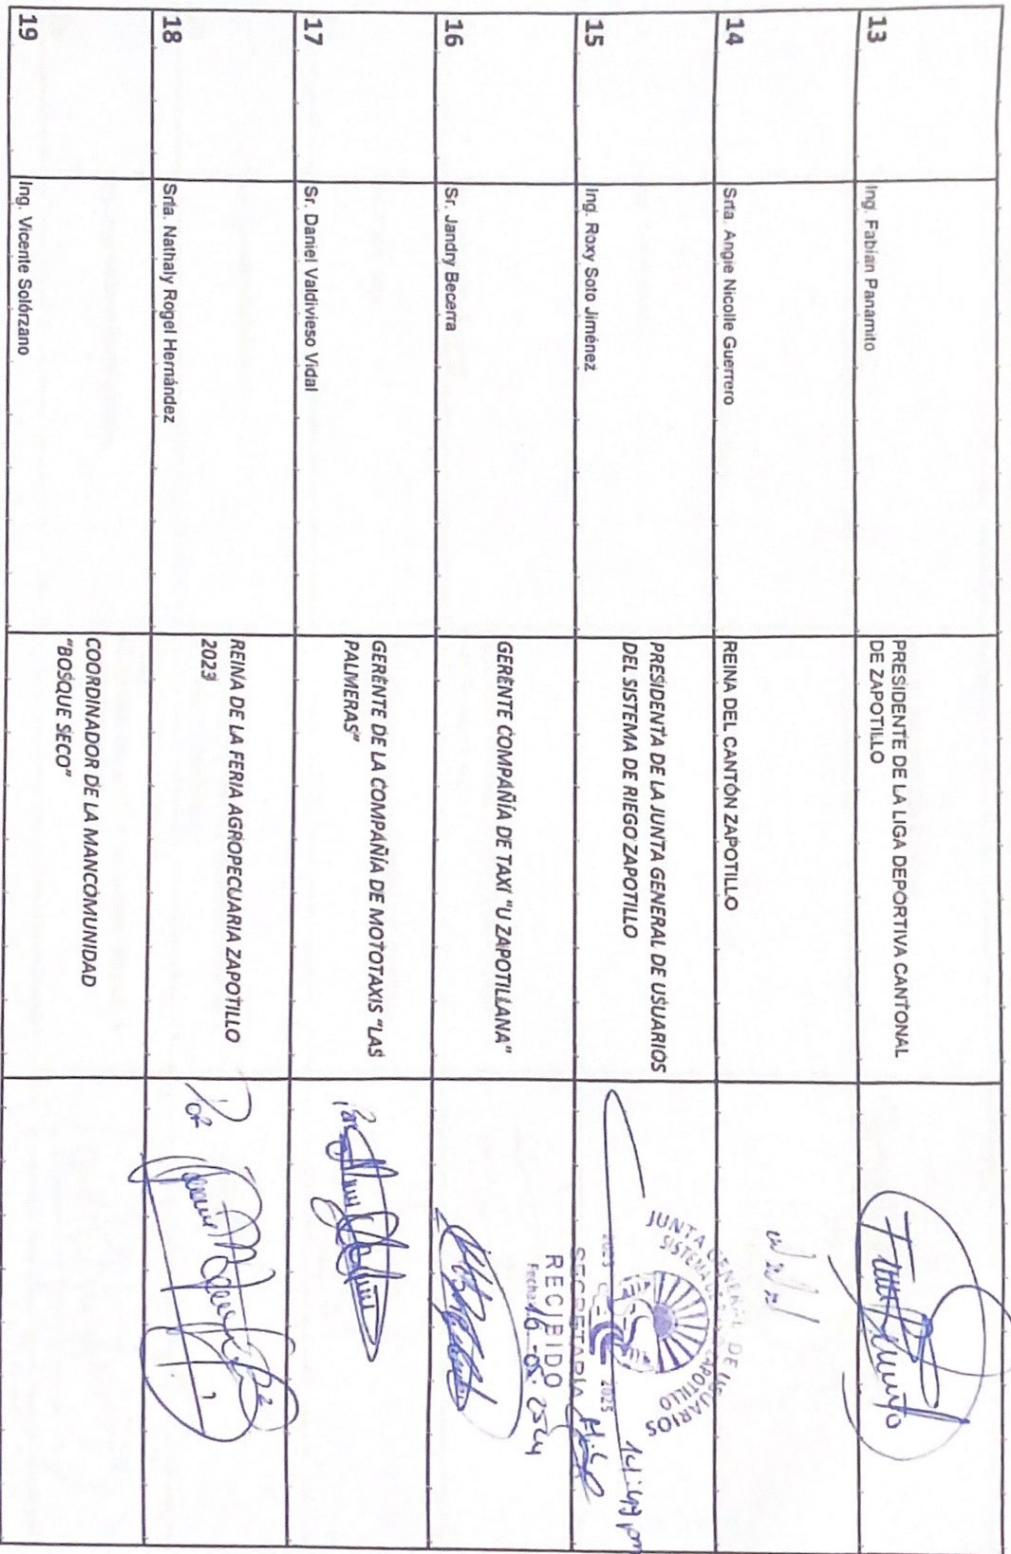 13
Ing. Fabian Panamito
PRESIDENTE DE LA LIGA DEPORTIVA CANTONAL
DE ZAPOTILLO
14
Srta. Angie Nicolle Guerrero
REINA DEL CANTÓN ZAPOTILLO
15
Ing. Roxy Soto Jiménez
PRESIDENTA DE LA JUNTA GENERAL DE USUARIOS
DEL SISTEMA DE RIEGO ZAPOTILLO
JUNTA GENERAL DE USUARIOS
SISTEMA DE ZAPOTILLO
2023 2025
14:49 pm
SECRETARIA
RECIBIDO
Fecha
16
Sr. Jandry Becerra
GERENTE COMPAÑÍA DE TAXI "U ZAPOTILLANA"
17
Sr. Daniel Valdivieso Vidal
GERENTE DE LA COMPAÑÍA DE MOTOTAXIS "LAS
PALMERAS"
18
Srta. Nathaly Rogel Hernández
REINA DE LA FERIA AGROPECUARIA ZAPOTILLO
2023
Por
19
Ing. Vicente Solórzano
COORDINADOR DE LA MANCOMUNIDAD
"BOSQUE SECO"